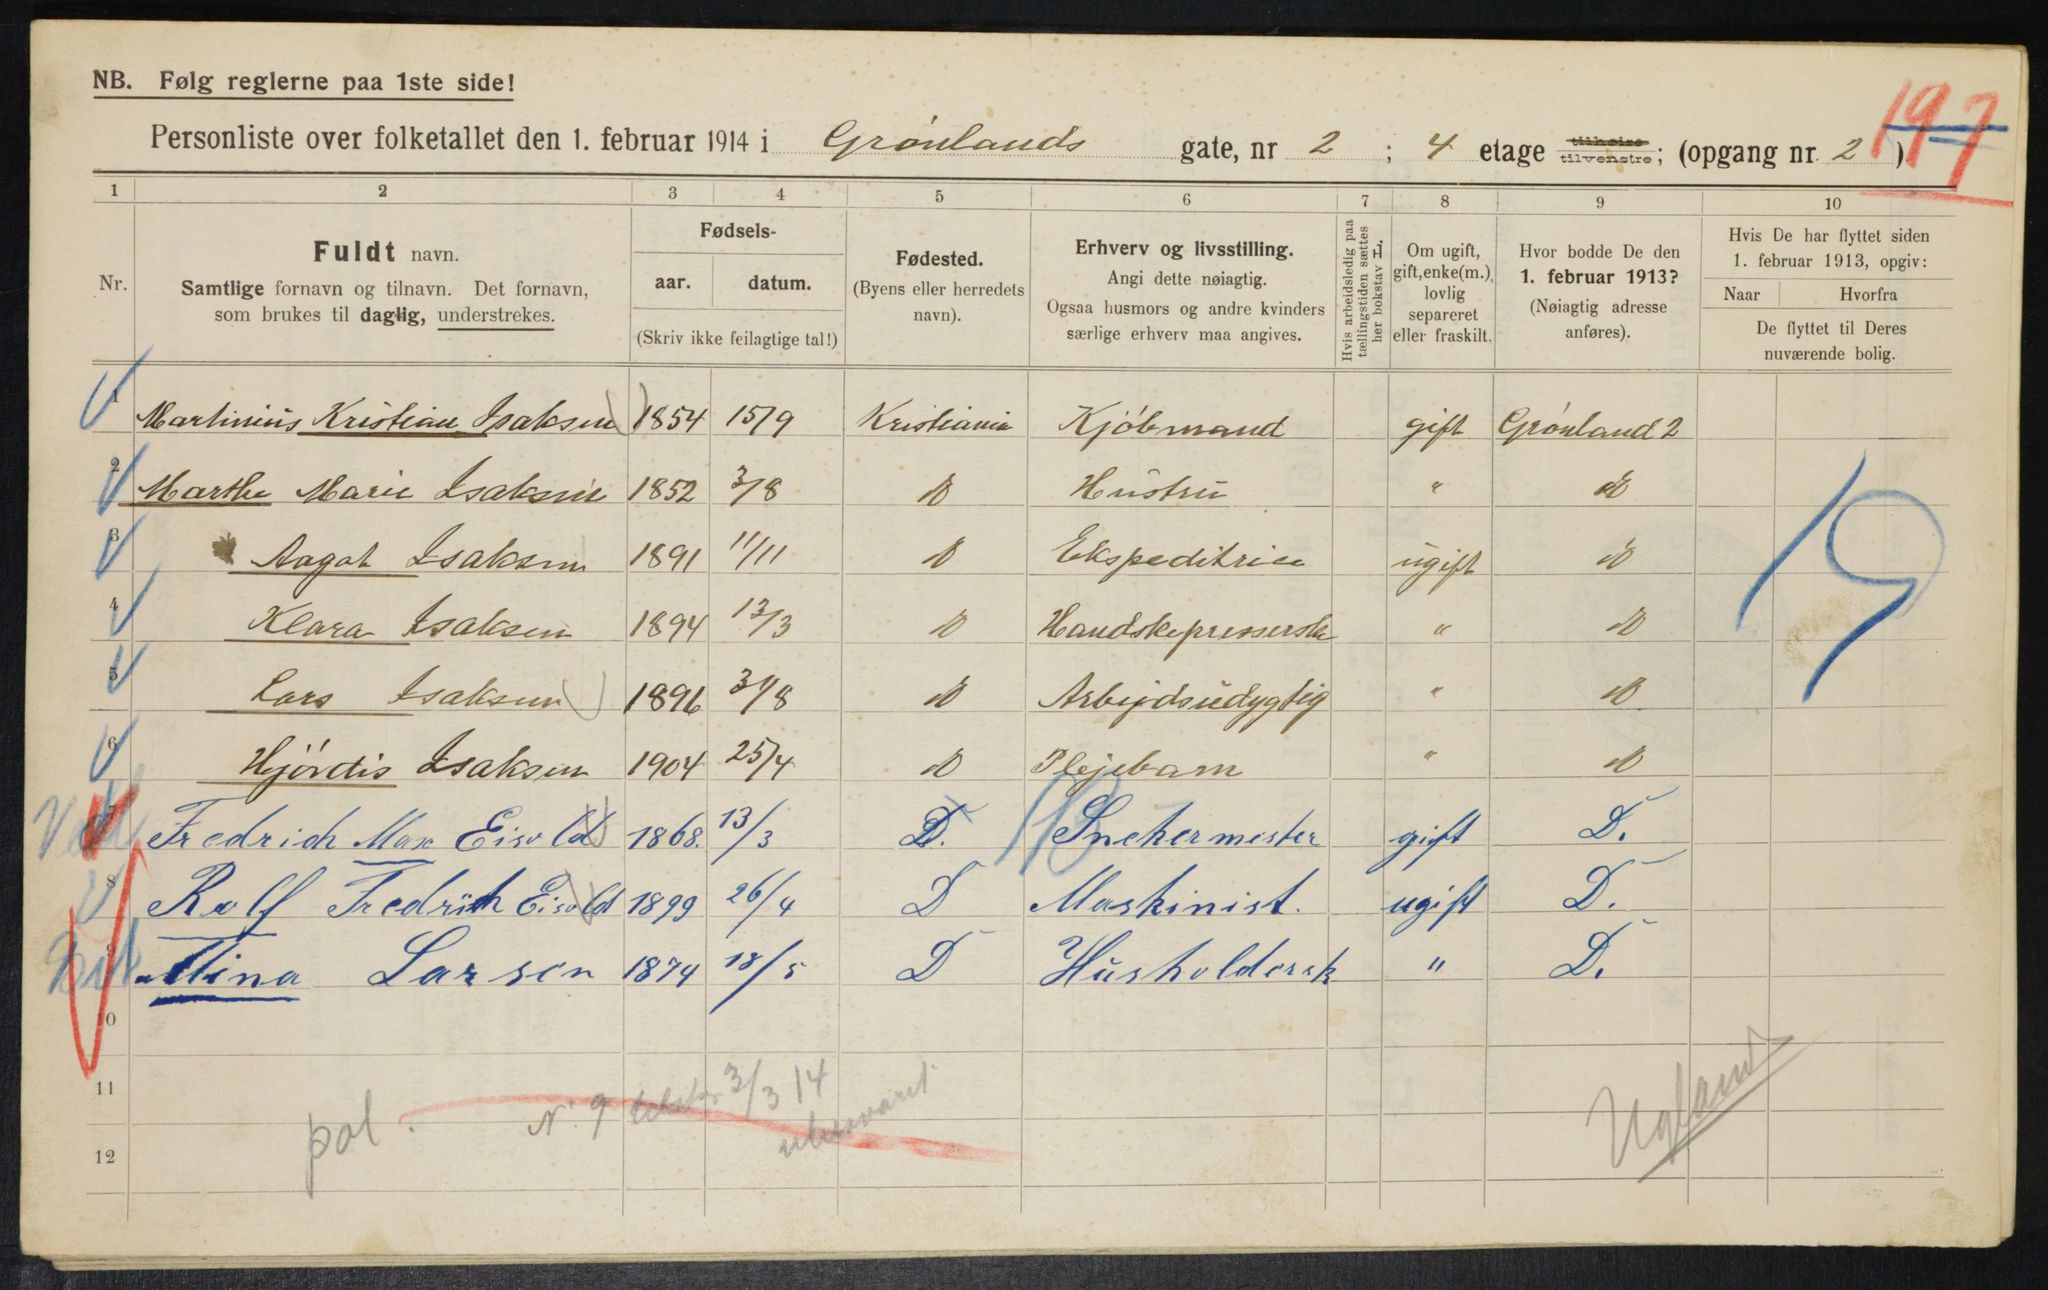 NB. Følg reglerne paa 1ste side!
197
Personliste over folketallet den 1. februar 1914 i Grønlands gate, nr 2 ; 4 etage tilhøire tilvenstre; (opgang nr. 2 ).
1 2 3 4 5 6 7 8 9 10
Nr.
Fuldt navn.
Samtlige fornavn og tilnavn. Det fornavn,
som brukes til daglig, understrekes.
Fødsels-
aar. datum.
(Skriv ikke feilagtige tal!)
Fødested.
(Byens eller herredets
navn).
Erhverv og livsstilling.
Angi dette nøiagtig.
Ogsaa husmors og andre kvinders
særlige erhverv maa angives.
Hvis arbeidsledig paa
tællingstiden sættes
her bokstav L.
Om ugift,
gift, enke(m.),
lovlig
separeret
eller fraskilt.
Hvor bodde De den
1. februar 1913?
(Nøiagtig adresse
anføres).
Hvis De har flyttet siden
1. februar 1913, opgiv:
Naar Hvorfra
De flyttet til Deres
nuværende bolig.
1 Martinius Kristian Isaksen 1854 15/9 Kristiania Kjøbmand gift Grønland 2
2 Marthe Marie Isaksen 1852 3/8 D Hustru " D
3 Aagot Isaksen 1891 11/11 D Ekspeditrice ugift D
4 Klara Isaksen 1894 13/3 D Handskepresserske " D
5 Lars Isaksen 1896 31/8 D Arbejdsudygtig " D
6 Hjørdis Isaksen 1904 25/4 D Plejebarn " D
7 Fredrich Max Eisold 1868. 13/3 D. Snekermester gift D.
8 Rolf Fredrich Eisold 1899 26/4 D Maskinist. ugift D.
9 Mina Larsen 1874 18/5 D Husholdersk " D.
10
11
12
pol. N. 9 3/3 14
ubesvaret